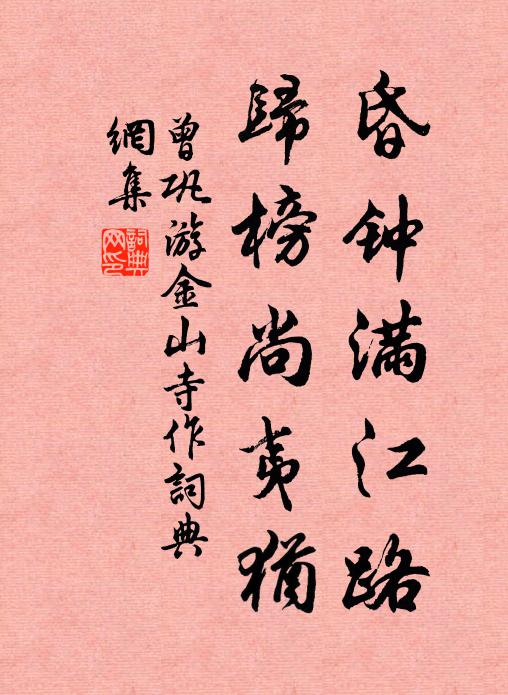 昏钟满江路
歸榜尚夷猶
曾巩游金山寺作詞典
網集
詞典網印